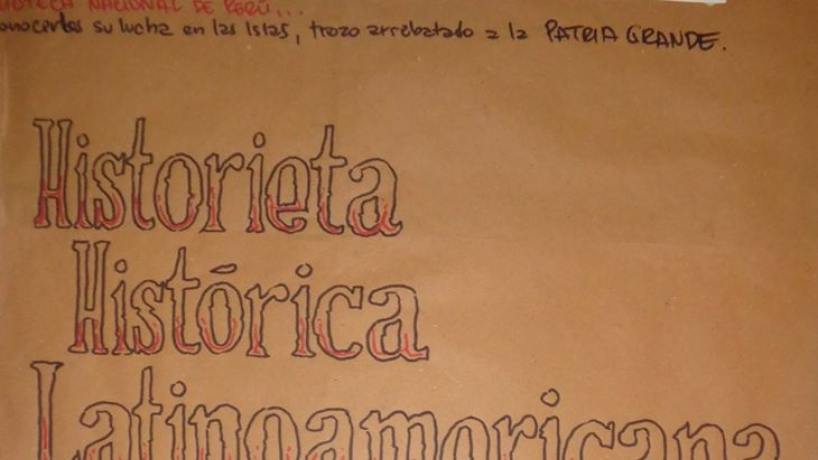 NACIONAL DE PERÚ...
su lucha en las Islas, trozo arrebatado a la PATRIA GRANDE.
Historieta
Histórica
Latinoamericana